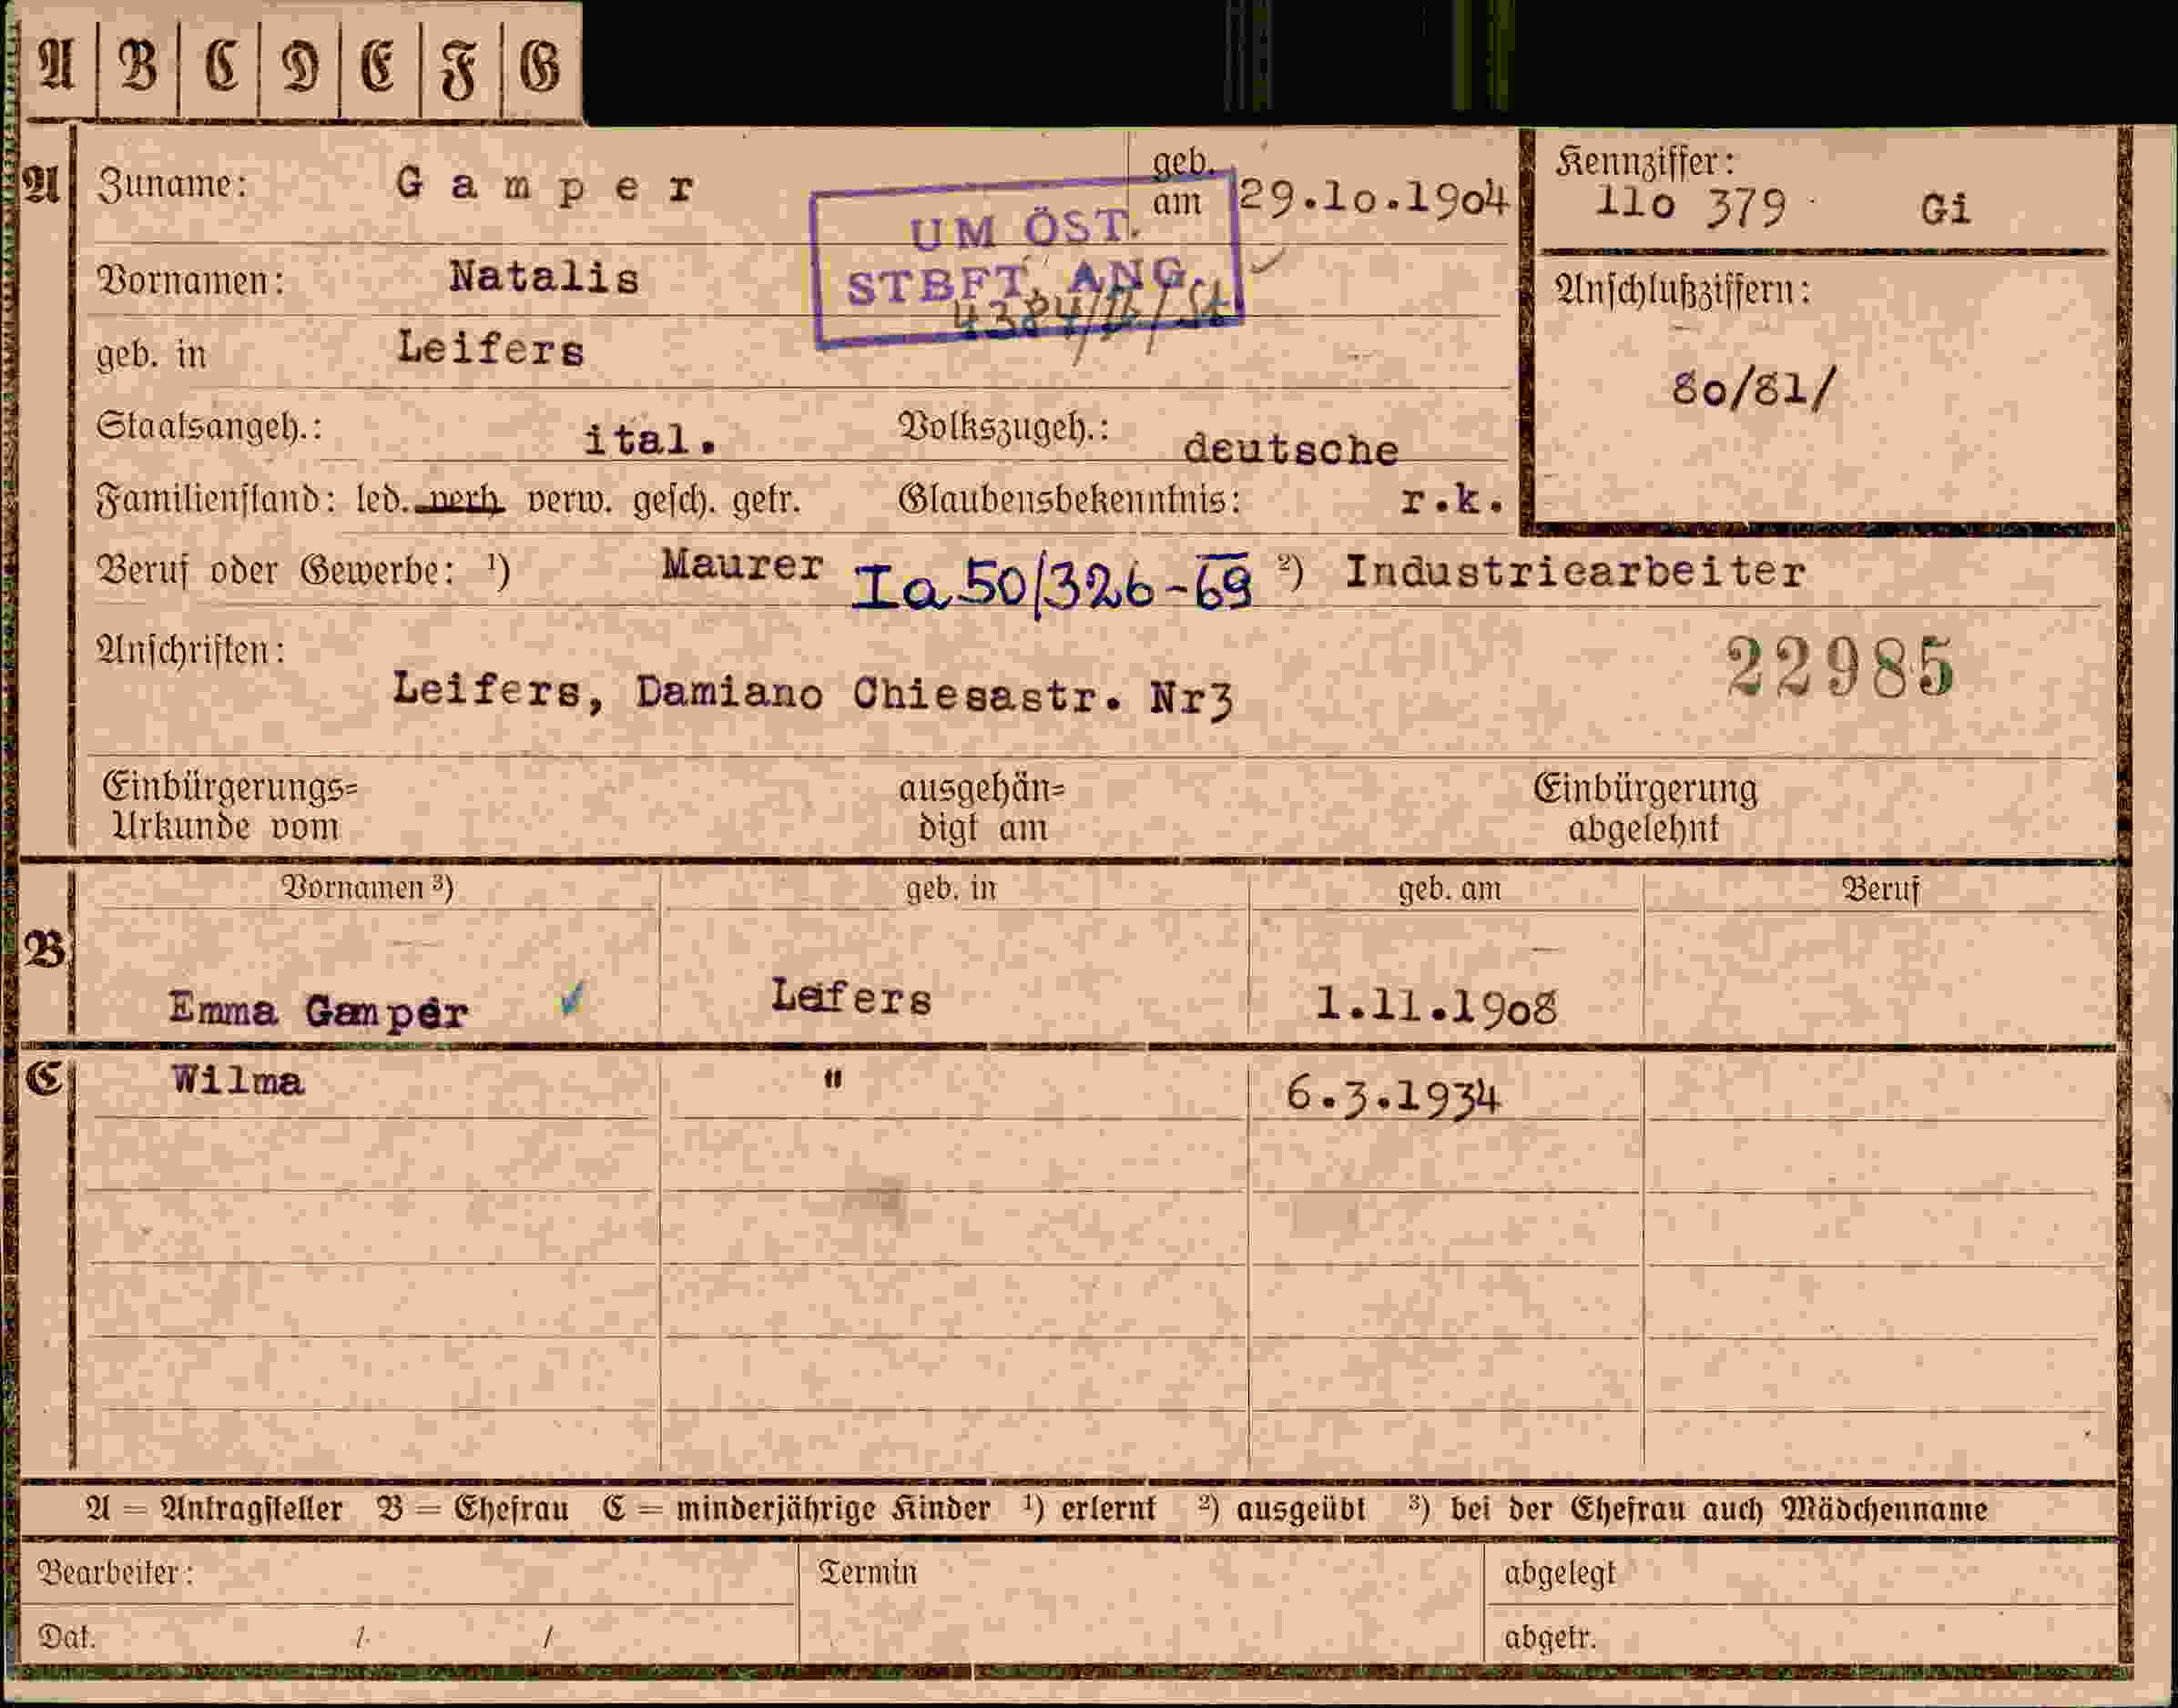 A B C D E F G
A Zuname: Gamper geb. am 29.10.1904
Kennziffer:
110 379 Gi
UM ÖST.
STBFT. ANG.
Vornamen: Natalis
Anschlußziffern:
80/81/
geb. in Leifers
Staatsangeh.: ital. Volkszugeh.: deutsche
Familienstand: led. verh. verw. gesch. getr. Glaubensbekenntnis: r.k.
Beruf oder Gewerbe: ¹) Maurer Ia 50/326-69 ²) Industriearbeiter
Anschriften:
22985
Leifers, Damiano Chiesastr. Nr3
Einbürgerungs= Urkunde vom ausgehän= digt am Einbürgerung abgelehnt
Vornamen ³) geb. in geb. am Beruf
B
Emma Gamper Leifers 1.11.1908
C Wilma " 6.3.1934
A = Antragsteller B = Ehefrau C = minderjährige Kinder ¹) erlernt ²) ausgeübt ³) bei der Ehefrau auch Mädchenname
Bearbeiter: Termin abgelegt
Dat. / / abgetr.